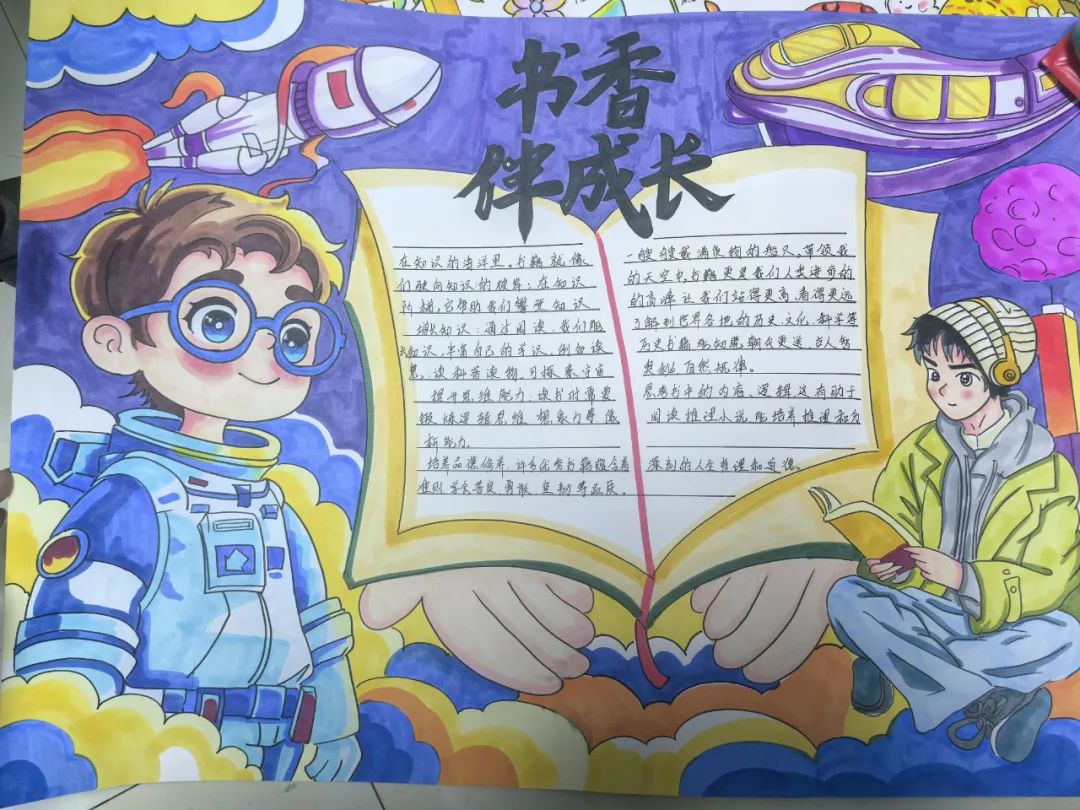 书香
伴成长
在知识的海洋里,书籍就像
们驶向知识的彼岸;在知识
阶梯,它帮助我们攀登知识
增长知识:通过阅读,我们能
知识,丰富自己的学识,例如读
慧;读科普读物,可探索宇宙
提升思维能力:读书时需要
锻炼逻辑思维、想象力等,像
析能力。
培养品德修养:许多优秀书籍蕴含着
准则,学会善良、勇敢、坚韧等品质。
一艘艘载满货物的船只,带领我
的天空中,书籍更是我们人类进步的
的高峰,让我们站得更高,看得更远
了解到世界各地的历史、文化、科学等
历史书籍能知晓朝代更迭、古人智
奥秘、自然规律。
思考书中的内容、逻辑,这有助于
阅读推理小说能培养推理和分
深刻的人生哲理和道德